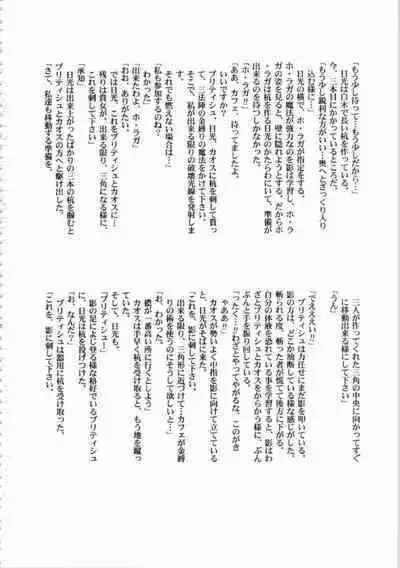 「もう少し待って…もう少しだから…」
日光は白木で長い杭を作っている。
今、三本目にかかっているところだ。
「もう少し鋭利な方がいい!奥へとざっくり入り
込む様に…」
日光の横で、ホ・ラガが指定をする。
ホ・ラガの魔法が強力なのを影は学習し、ホ・ラ
ガの姿を見ると、壁に隠れようとする。だからホ
・ラガは杭を作る日光のかたわらにいて、準備が
出来るのを待つしかなかった。
「ホ・ラガ!!」
「ああ、カフェ、待ってましたよ。
いいですか?
ブリティシュ、日光、カオスに杭を刺して貰っ
て、三法陣の金縛りの魔法をかけて下さい。
そこで、私が出来る限りの破壊光線を発射しま
す。
それでも燃えない場合は…」
「私も参加するのね?
わかった」
「出来たわよ、ホ・ラガ」
「おお、ありがたい。
日光、これをブリティシュとカオスに…
残りは貴女が、出来る限り、三角になる様に、
これを刺して下さい」
「承知」
日光は出来上がったばかりの三本の杭を掴むと
ブリティシュとカオスの方へと駆け出した。
「さて、私達も移動する準備を、
三人が作ってくれた三角の中央に向かってすぐ
に移動出来る様にして下さい」
「うん」
「でえええい!!」
ブリティシュは力任せにまだ影を叩いている。
影の方は、どこか油断している様な感じがした。
斬られる度、斬った者が慌てて後方に下がる、
自分の体液を恐れている事を学習すると、影はわ
ざとブリティシュとカオスをからかう様に、ぶん
ぶんと手を振り回している。
「ったくぅ!!わざとやってやがるな、このがき
ゃああ!!」
カオスが勢いよく中指を影に向けて立てている
と、日光がそばに来た。
「これを、影に刺して下さい。
出来る限り、三角形に近づけて!カフェが金縛
りの術を使うのにそうして欲しいと…」
「お、わかった。
儂が一番高い所に行くとしよう」
カオスは手早く杭を受け取ると、もう地を蹴っ
ていた。
そして、日光も、
「ブリティシュ!」
影の足によじ登る様な格好でいるブリティシュ
に、日光は杭を投げつけた。
「お、なんだ?」
ブリティシュは器用に杭を受け取った。
「これを、影に刺して下さい。